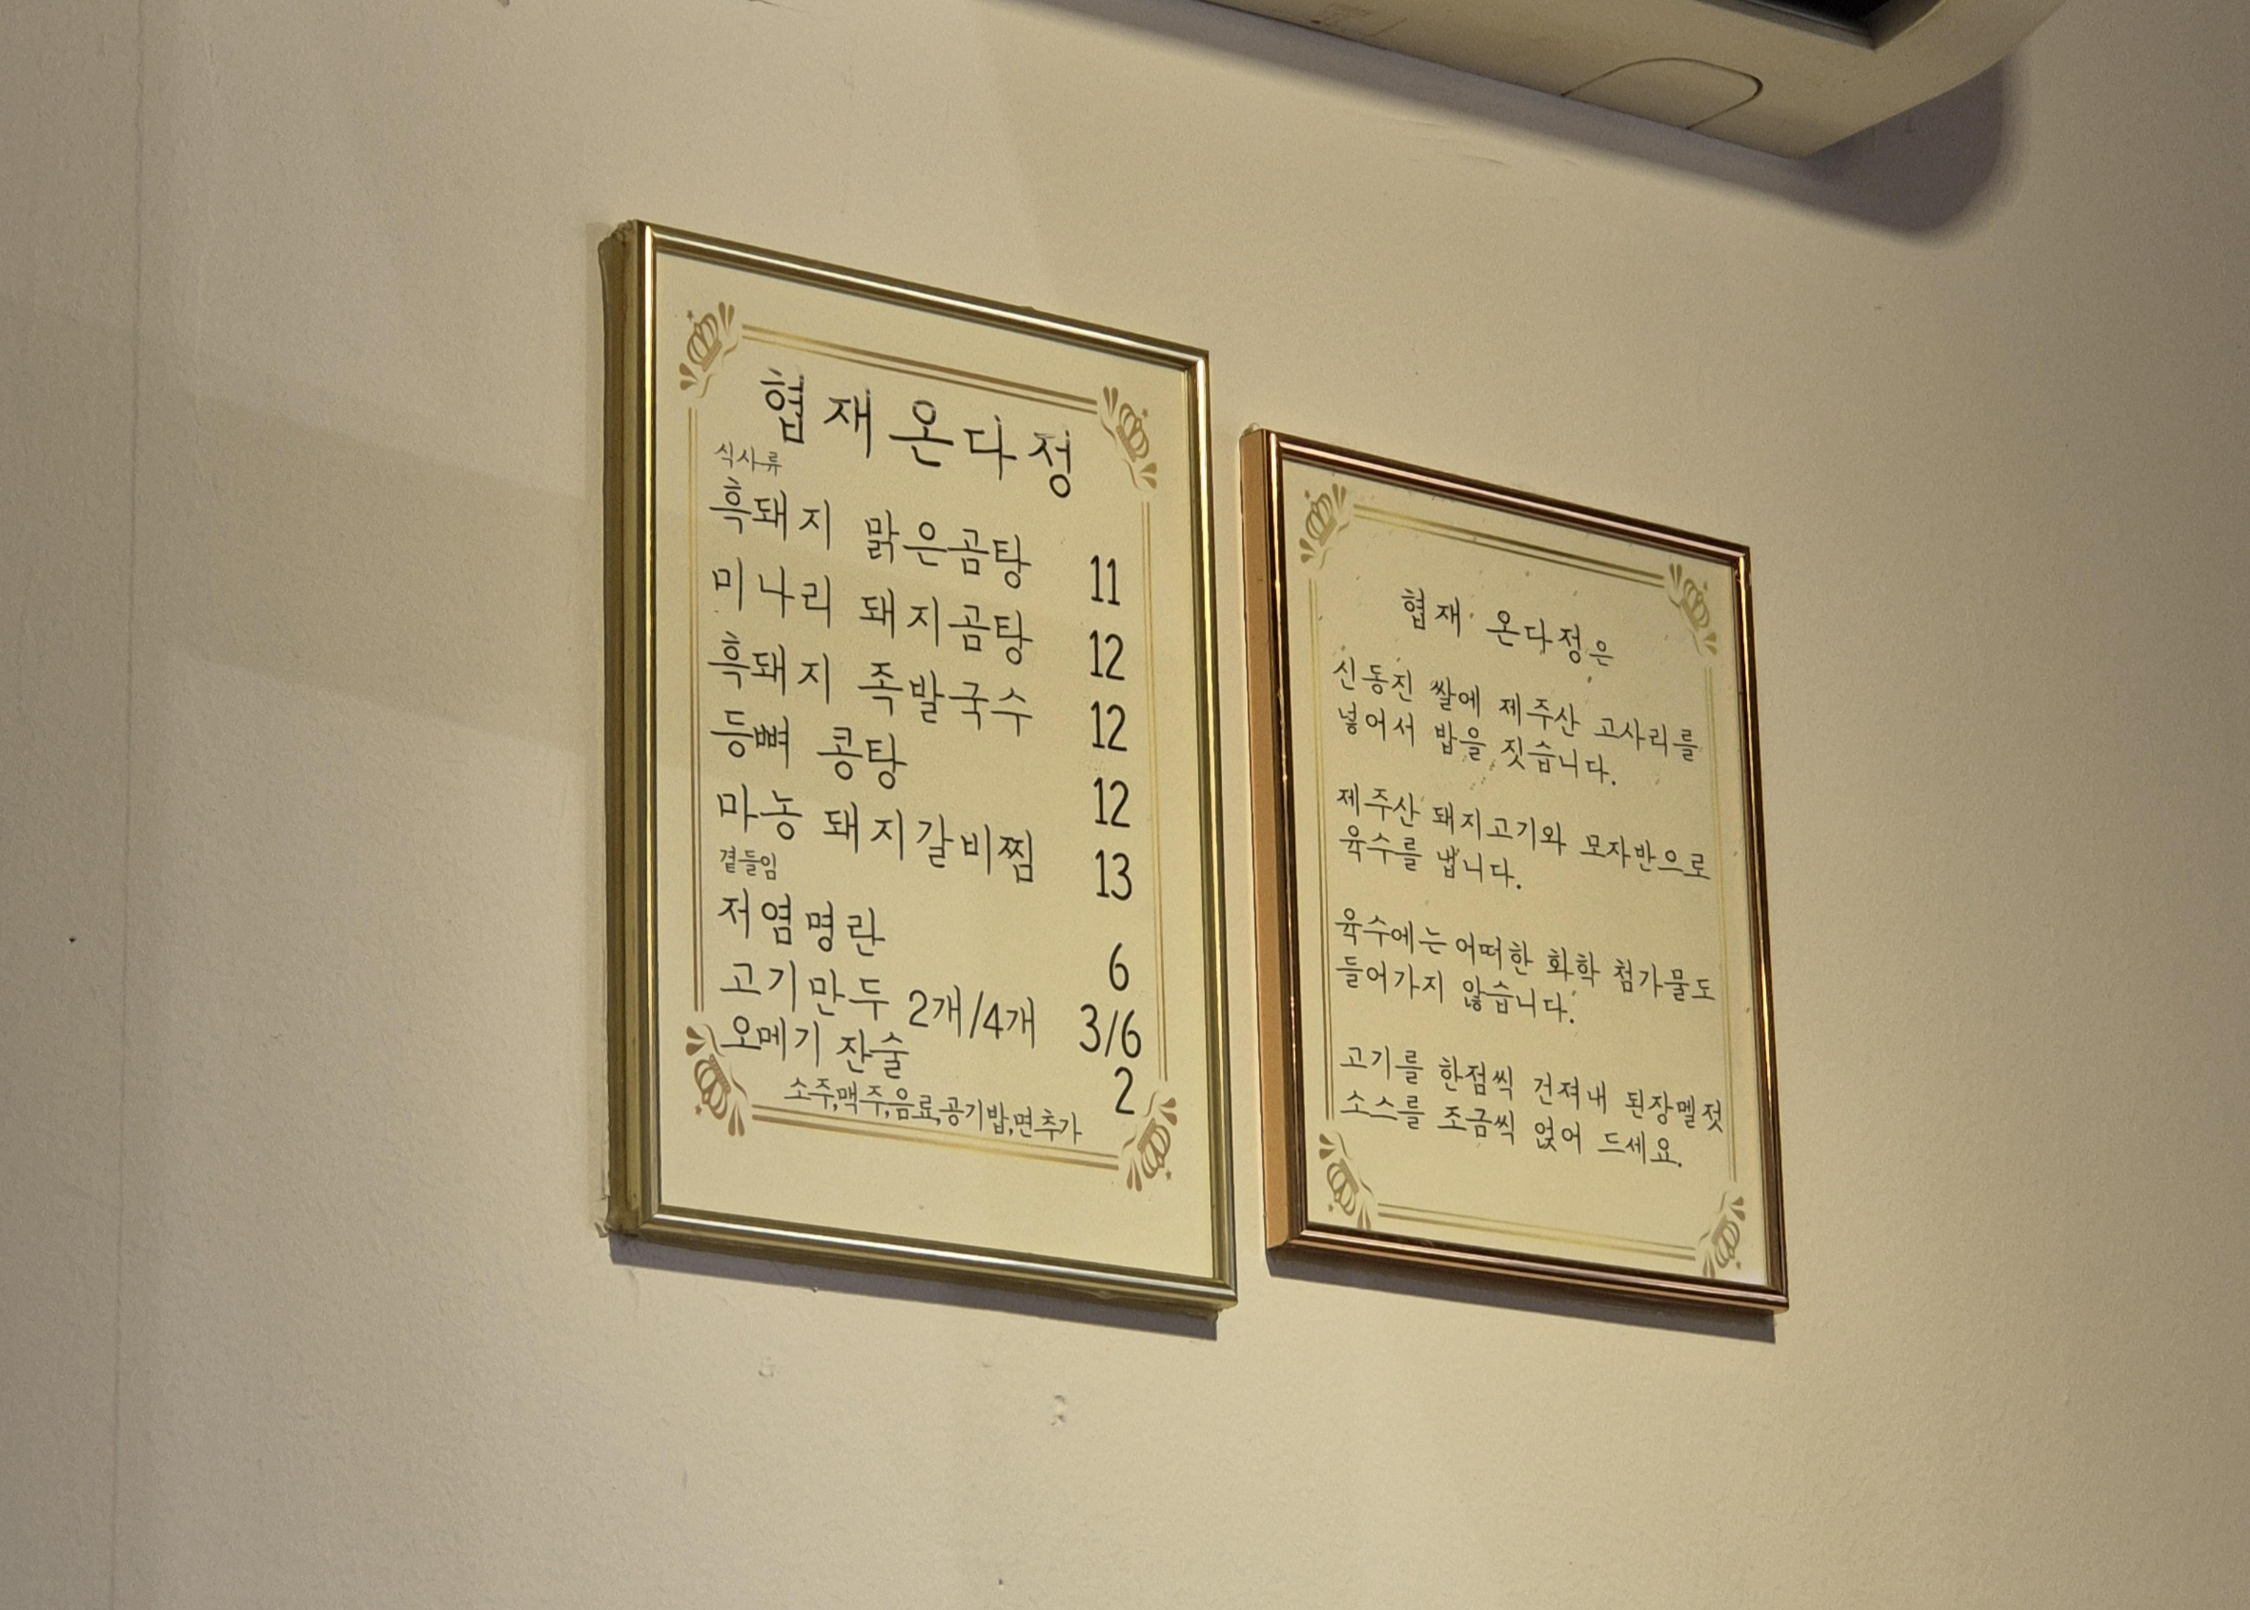 협재온다정
식사류
흑돼지 맑은곰탕 11
미나리 돼지곰탕 12
흑돼지 족발국수 12
등뼈 콩탕 12
마농 돼지갈비찜 13
곁들임
저염명란 6
고기만두 2개/4개 3/6
오메기 잔술 2
소주,맥주,음료,공기밥,면추가
협재 온다정은
신동진 쌀에 제주산 고사리를
넣어서 밥을 짓습니다.
제주산 돼지고기와 모자반으로
육수를 냅니다.
육수에는 어떠한 화학 첨가물도
들어가지 않습니다.
고기를 한점씩 건져내 된장멜젓
소스를 조금씩 얹어 드세요.